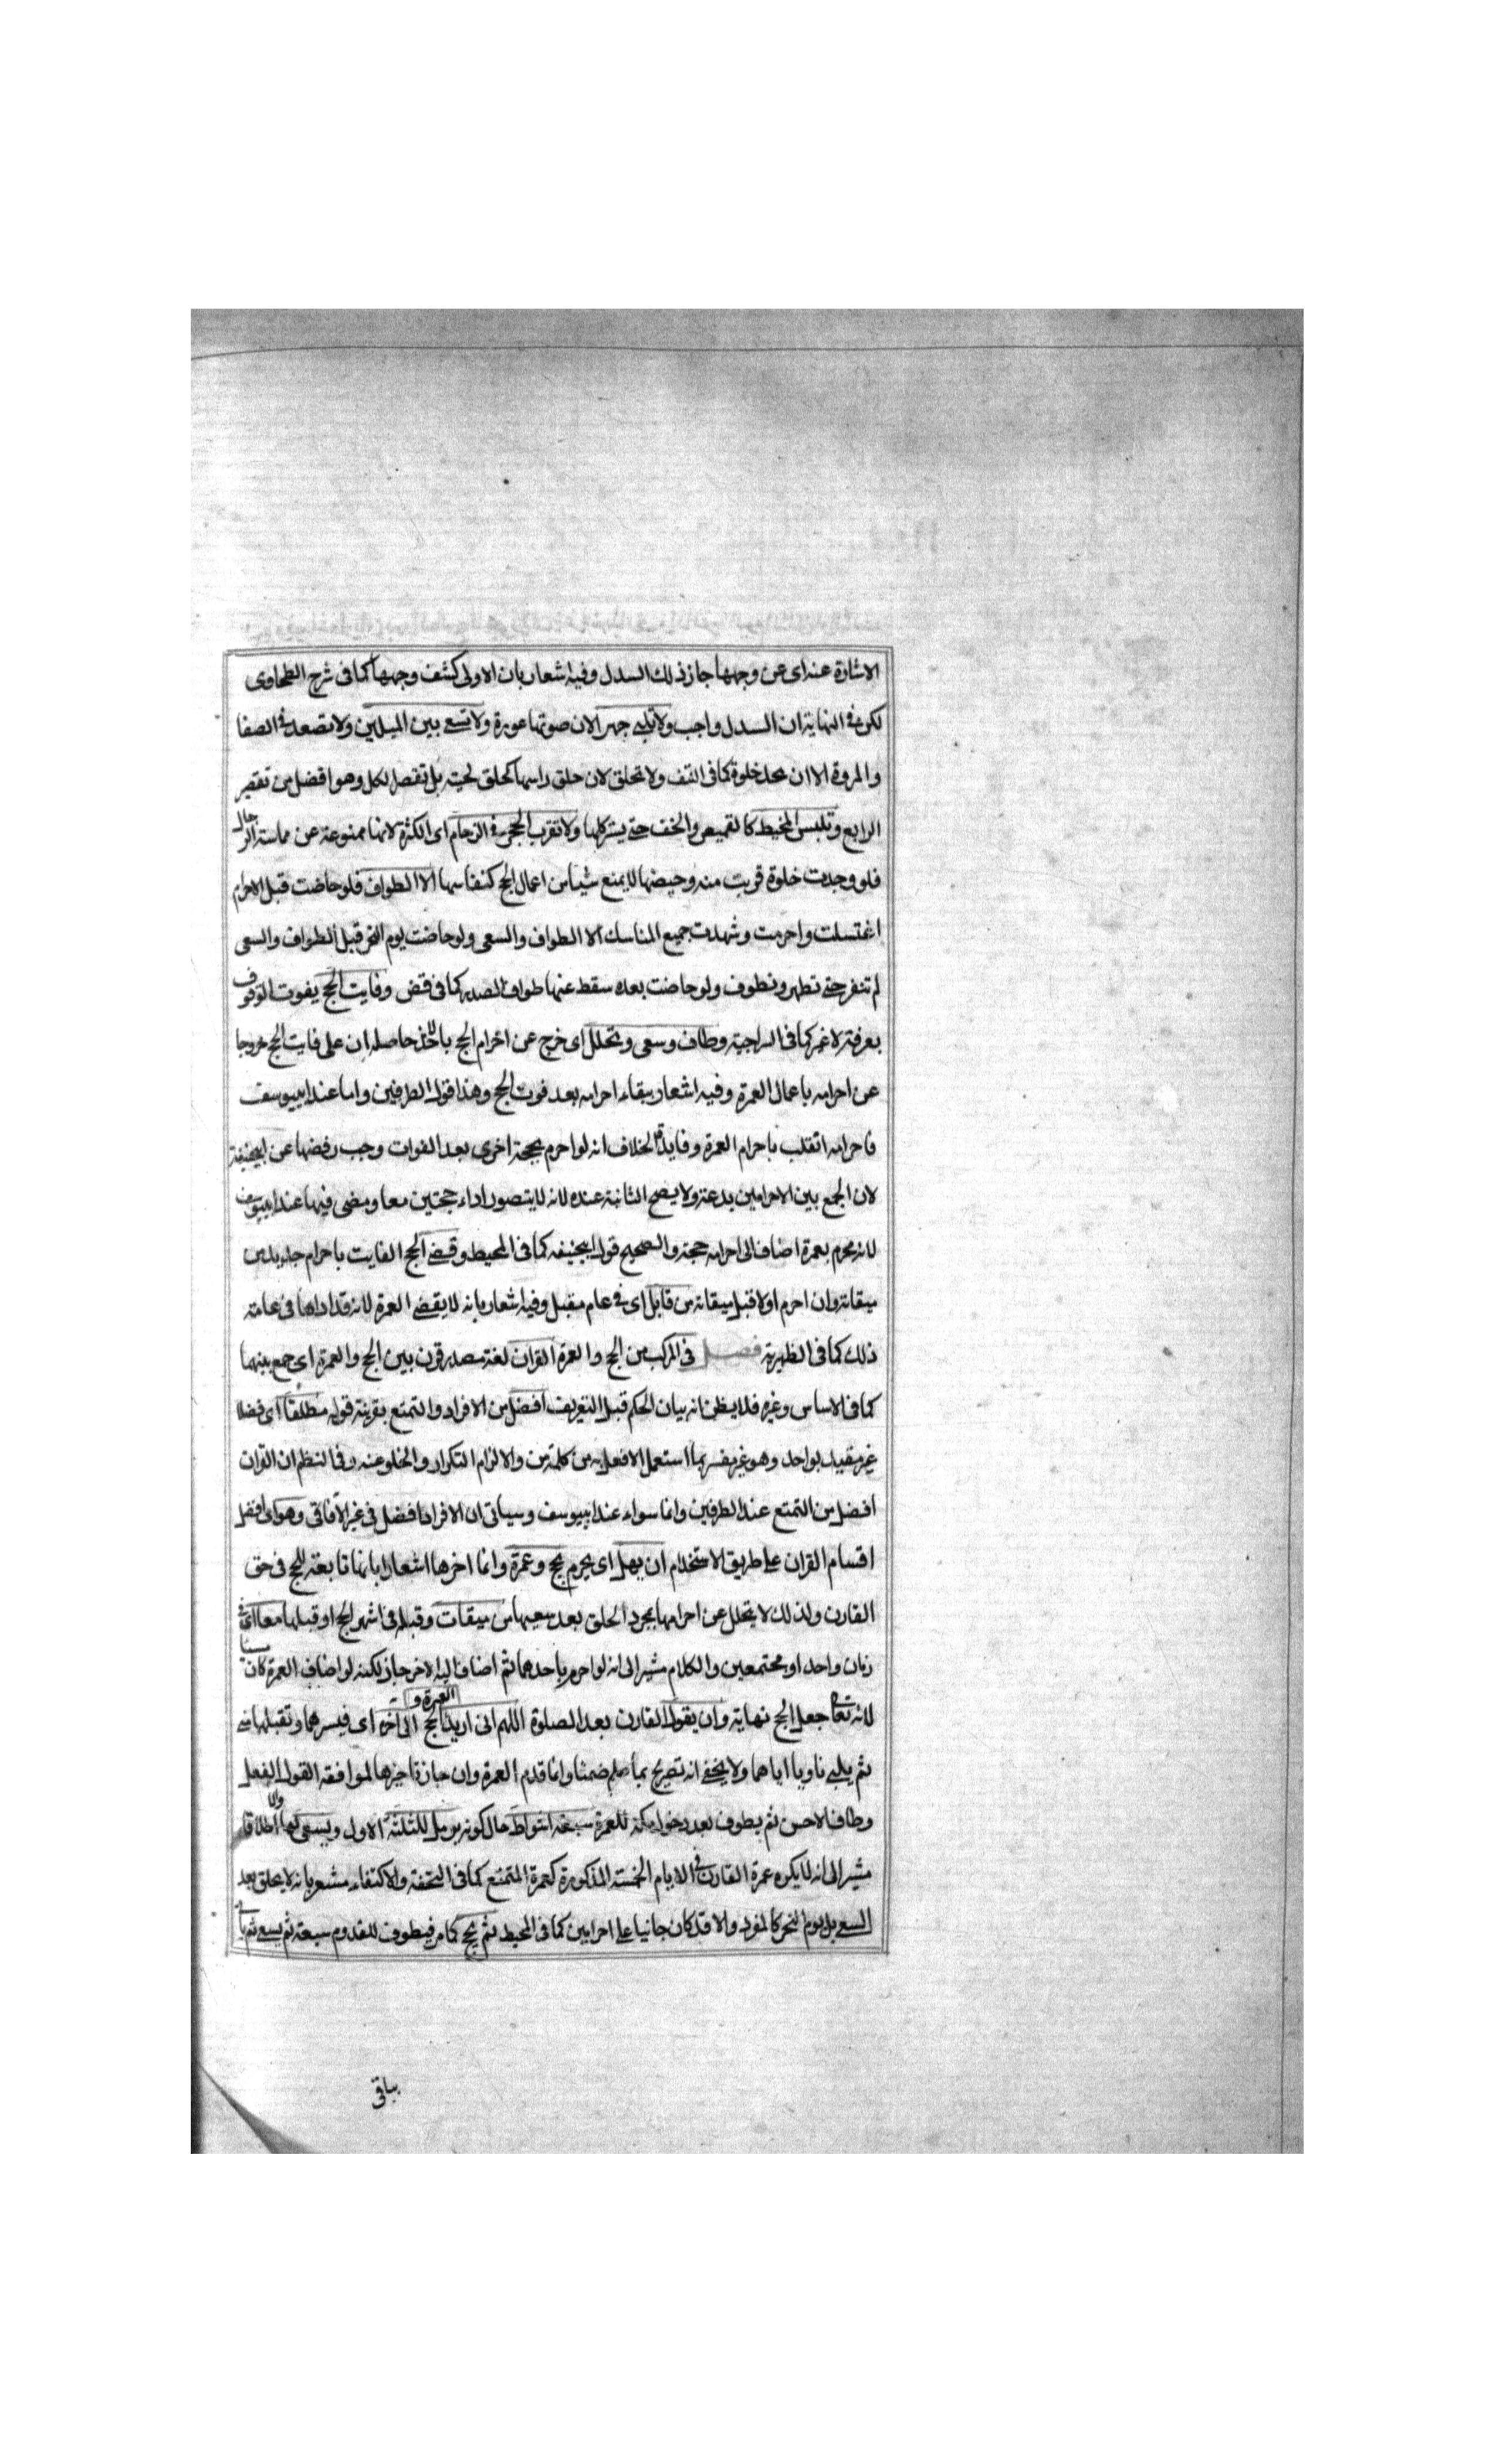 الاشارة عنه اى عن وجهها جاز ذلك السدل وفيه اشعار بان الاولى كشف وجهها كما فى شرح الطحاوى
لكن فى النهاية ان السدل واجب ولا تلبى جهرا لان صوتها عورة ولا تسعى بين الميلين ولا تصعد فى الصفا
والمروة الا ان تجد خلوة كما فى النتف ولا تحلق لان حلق راسها كحلق لحيته بل تقصر لكل وهو افضل من تقصير
الرابع وتلبس المخيط كالقميص والخف حتى يستر كلها ولا تقرب الحجر فى الزحام اى الكثرة لانها ممنوعة عن مماسة الرجال
فلو وجدت خلوة قربت منه وحيضها لا يمنع شيأ من اعمال الحج كنفاسها الا الطواف فلو حاضت قبل الاحرام
اغتسلت واحرمت وشهدت جميع المناسك الا الطواف والسعى ولو حاضت يوم النحر قبل الطواف والسعى
لم تنفر حتى تطهر وتطوف ولو حاضت بعده سقط عنها طواف الصدر كما فى قض وفايت الحج يفوت الوقوف
بعرفة لا غير كما فى السراجية وطاف وسعى وتحلل اى خرج عن احرام الحج حاصله ان على فايت الحج خروجا
عن احرامه باعمال العمرة وفيه اشعار ببقاء احرامه بعد فوت الحج وهذا قول الطرفين واما عند ابييوسف
فاحرامه انقلب باحرام العمرة وفايدة الخلاف انه لو احرم بحجة اخرى بعد الفوات وجب رفضها عن ابيحنيفة
لان الجمع بين الاحرامين بدعة ولا يصح الثانية عنده لانه لا يتصور اداء حجتين معا ومضى فيها عند ابييوسف
لانه محرم بعمرة اضاف الى احرامه حجة والصحيح قول ابيحنيفه كما فى المحيط وقضى الحج الفايت باحرام جديد من
ميقاته وان احرم اولا قبل ميقاته من قابل اى فى عام مقبل وفيه اشعار بانه لا يقضى العمرة لانه قد اداها فى عامه
ذلك كما فى الظهيرية فصل فى المركب من الحج والعمرة القران لغة مصدر قرن بين الحج والعمرة اى جمع بينهما
كما فى الاساس وغيره فلا يظن انه بيان الحكم قبل التعريف افضل من الافراد والتمتع بقرينة قوله مطلقا اى فضلا
غير مقيد بواحد وهو غير مفسر بما استعمل الافعل به من كلمة من والا لزم التكرار والخلو عنه وفى النظم ان القران
افضل من التمتع عند الطرفين وانما سواء عند ابييوسف وسياتى ان الافراد افضل فى غير الآفاقى وهو اى افضل
اقسام القران على طريق الاستخدام ان يهل اى يحرم بحج وعمرة وانما اخرها اشعارا بانها تابعة للحج فى حق
القارن ولذلك لا يتحلل عن احرامها بمجرد الحلق بعد سعيها من ميقات وقبله فى اشهر الحج او قبلها معا اى فى
زمان واحد او مجتمعين والكلام مشير الى انه لو احرم باحدهما ثم اضاف اليه الاخر جاز لكنه لو اضاف العمرة كان مسيئا
لانه تعا جعل الحج نهاية وان يقول القارن بعد الصلوة اللهم انى اريد العمرة و الحج الى آخره اى فيسرهما وتقبلهما منى
ثم يلبى ناويا اياهما ولا يخفى انه تصريح بما علم ضمنا وانما قدم العمرة وان جاز تاخيرها لموافقة القول الفعل
وطاف والاحسن ثم يطوف بعد دخول مكة للعمرة سبعة اشواط حال كونه يرمل للثلثة الاول ويسعى لها والاطلاق
مشير الى انه لا يكره عمرة القارن فى الايام الخمسة المذكورة كعمرة المتمتع كما فى التحفة والاكتفاء مشعر بانه لا يحلق بعد
السعى بل يوم النحر كالمفرد والا قد كان جانيا على احرامين كما فى المحيط ثم يحج كما مر فيطوف للقدوم سبعة ثم يسعى ثم يأ
بباقى